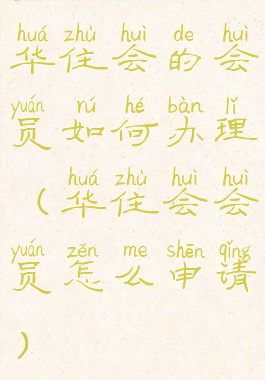 huá zhù huì de huì
华住会的会
yuán rú hé bàn lǐ
员如何办理
huá zhù huì huì
（华住会会
yuán zěn me shēn qǐng
员怎么申请
）